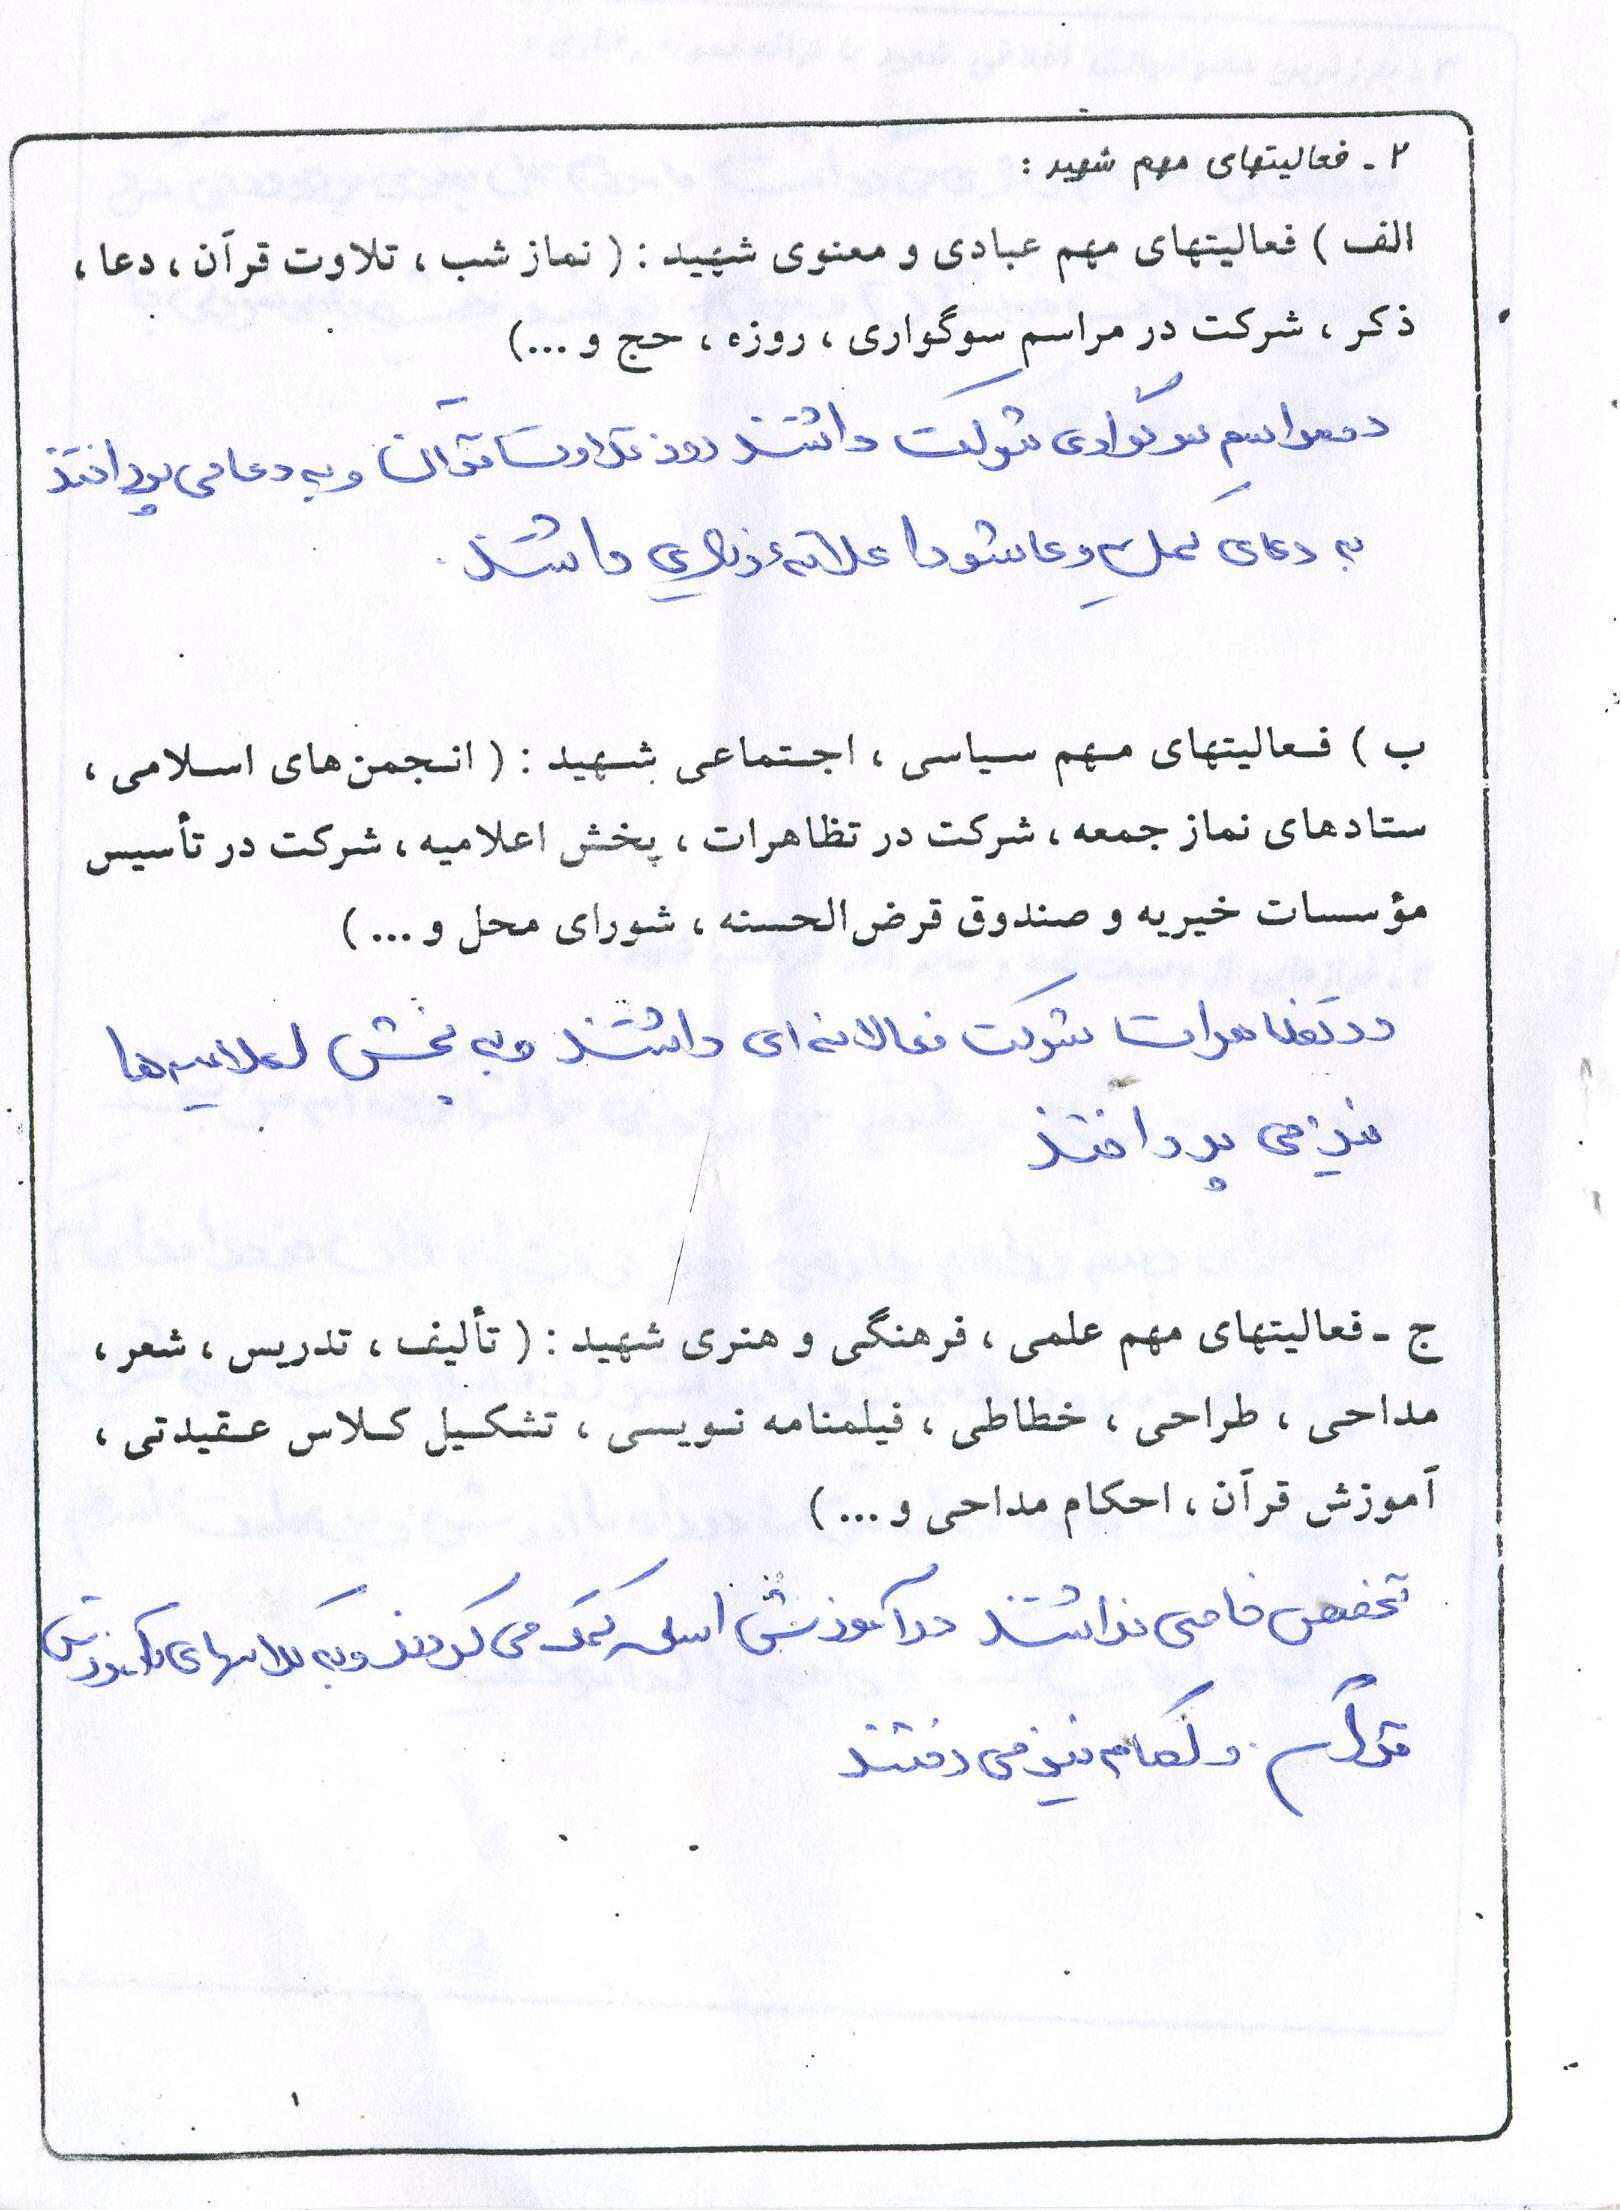 ۲ - فعالیتهای مهم شهید :
الف ) فعالیتهای مهم عبادی و معنوی شهید : ( نماز شب ، تلاوت قرآن ، دعا ،
ذکر ، شرکت در مراسم سوگواری ، روزه ، حج و ...)
در مراسم سوگواری شرکت داشتند روز تلاوت قرآن و به دعا می پرداختند
به دعای کمیل و عاشورا علاقهٔ زیادی داشتند .
ب ) فعالیتهای مهم سیاسی ، اجتماعی شهید : ( انجمن‌های اسلامی ،
ستادهای نماز جمعه ، شرکت در تظاهرات ، پخش اعلامیه ، شرکت در تأسیس
مؤسسات خیریه و صندوق قرض‌الحسنه ، شورای محل و ... )
در تظاهرات شرکت فعالانه‌ای داشتند و به پخش اعلامیه‌ها
نیز می پرداختند
ج - فعالیتهای مهم علمی ، فرهنگی و هنری شهید : ( تألیف ، تدریس ، شعر ،
مداحی ، طراحی ، خطاطی ، فیلمنامه نویسی ، تشکیل کلاس عقیدتی ،
آموزش قرآن ، احکام مداحی و ... )
تخصص خاصی نداشتند در آموزش اسلحه کمک می کردند و به کلاسهای آموزش
قرآن و احکام نیز می رفتند
۱